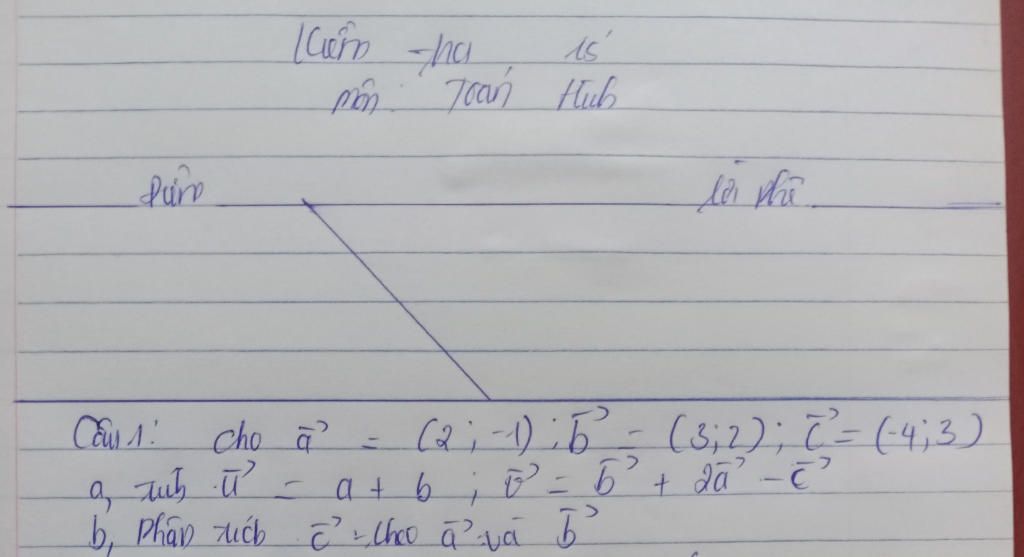 Kiểm tra 15'
môn: Toán Hình
Điểm lời phê
Câu 1: cho a⃗ = (2; -1); b⃗ = (3; 2); c⃗ = (-4; 3)
a, tính u⃗ = a + b; v⃗ = b⃗ + 2a⃗ - c⃗
b, Phân tích c⃗ theo a⃗ và b⃗